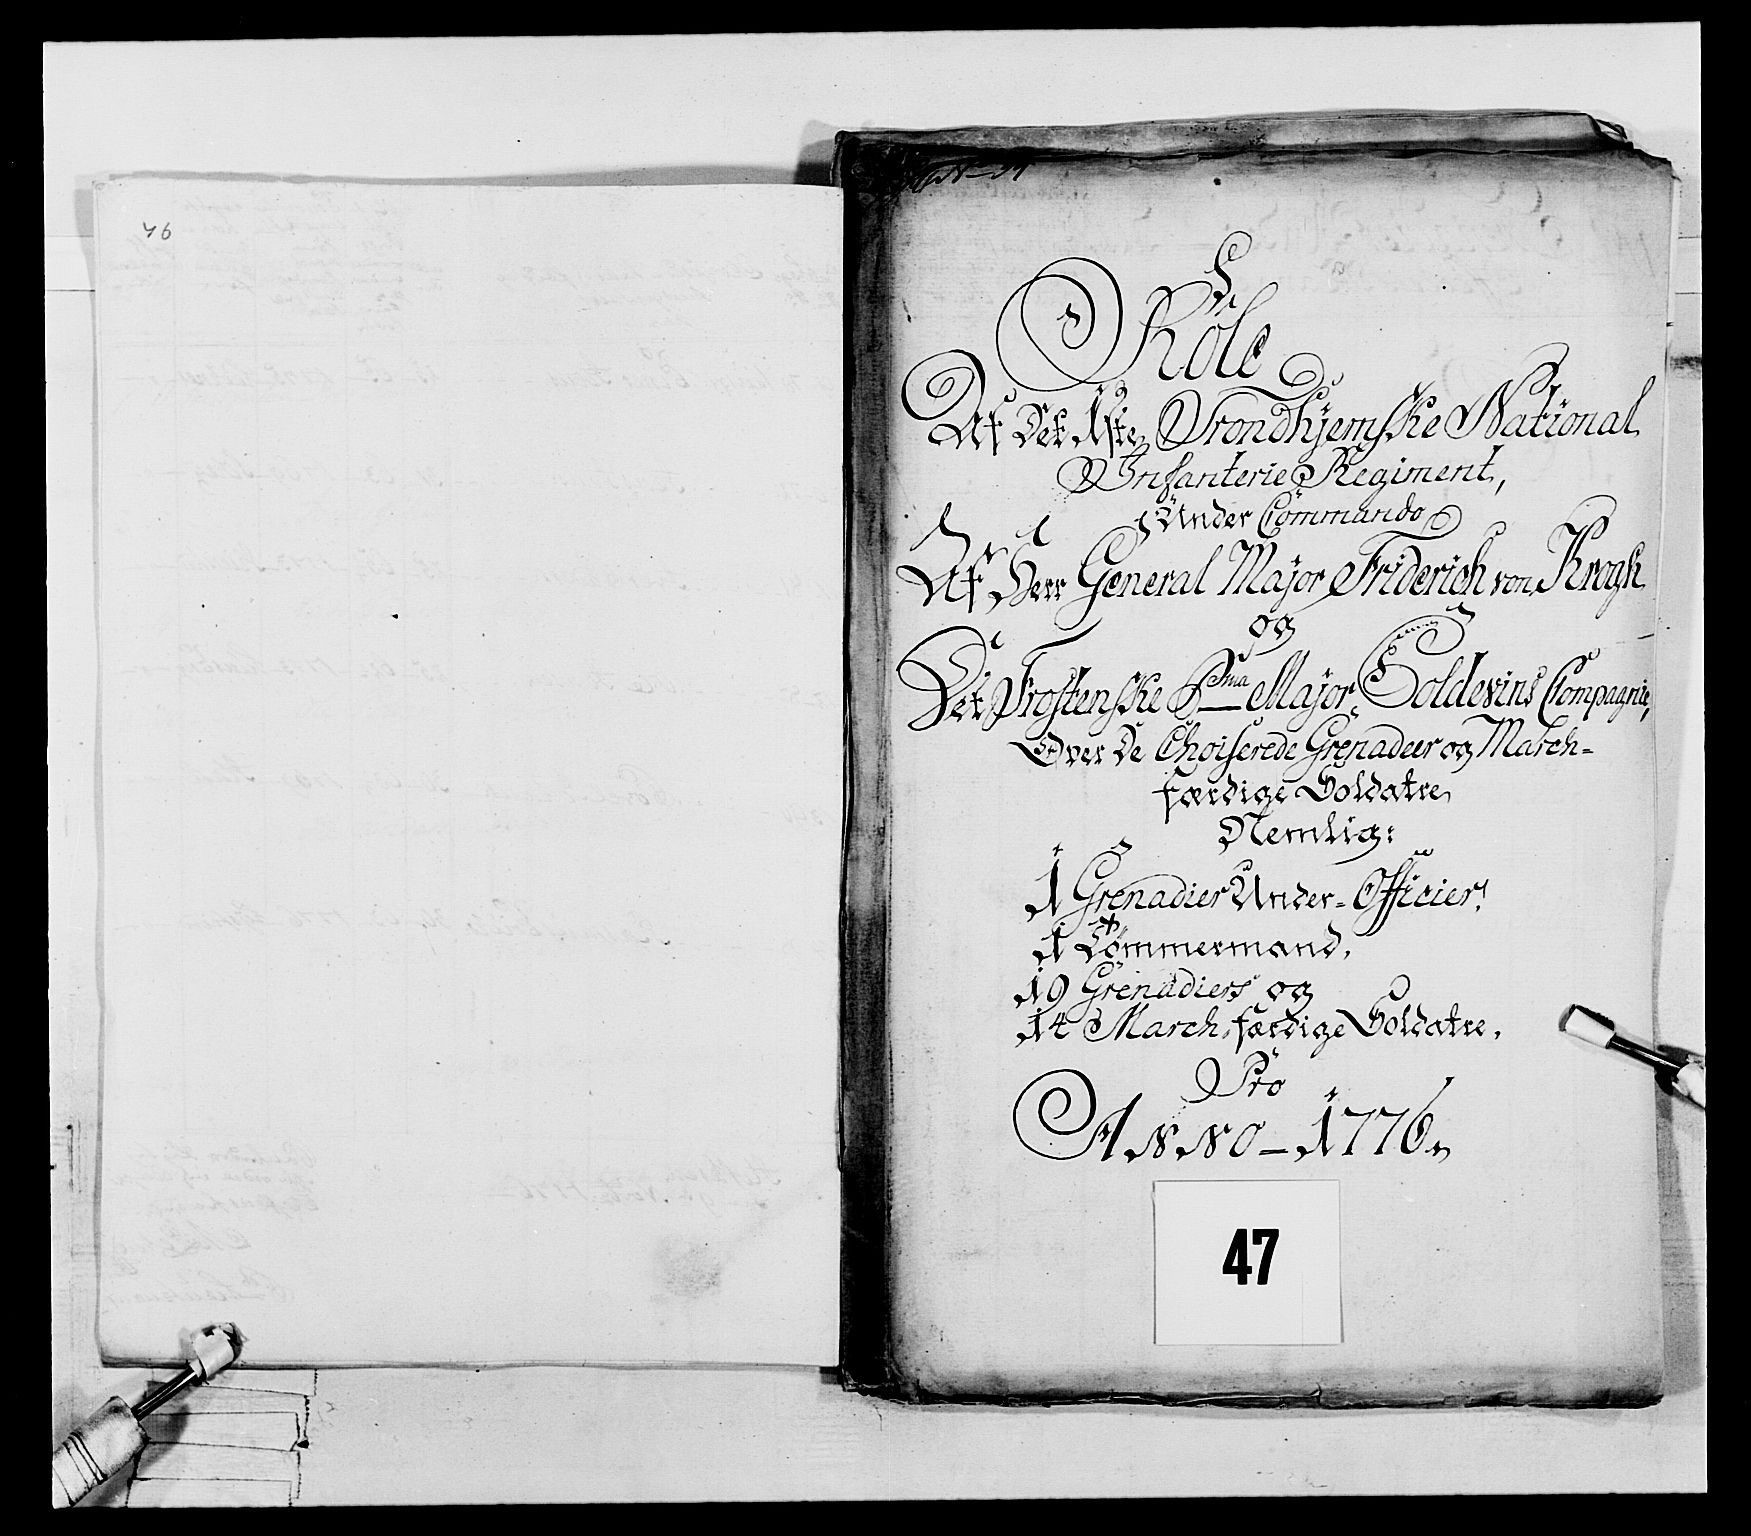 46
Role
Af Det 1ste Trondhjemske National
Infanterie Regiment,
Under Commando
Af Herr General Major Friderich von Krogh
og
Det Frostenske Major Coldevins Compagnie,
Over De Choiserede Grenadeer og March-
færdige Soldatre,
Nemlig:
1 Grenadier Under-Officier,
1 Tømmermand,
19 Grenadiers og
14 March færdige Soldatre,
Pro
ANNO - 1776.
47